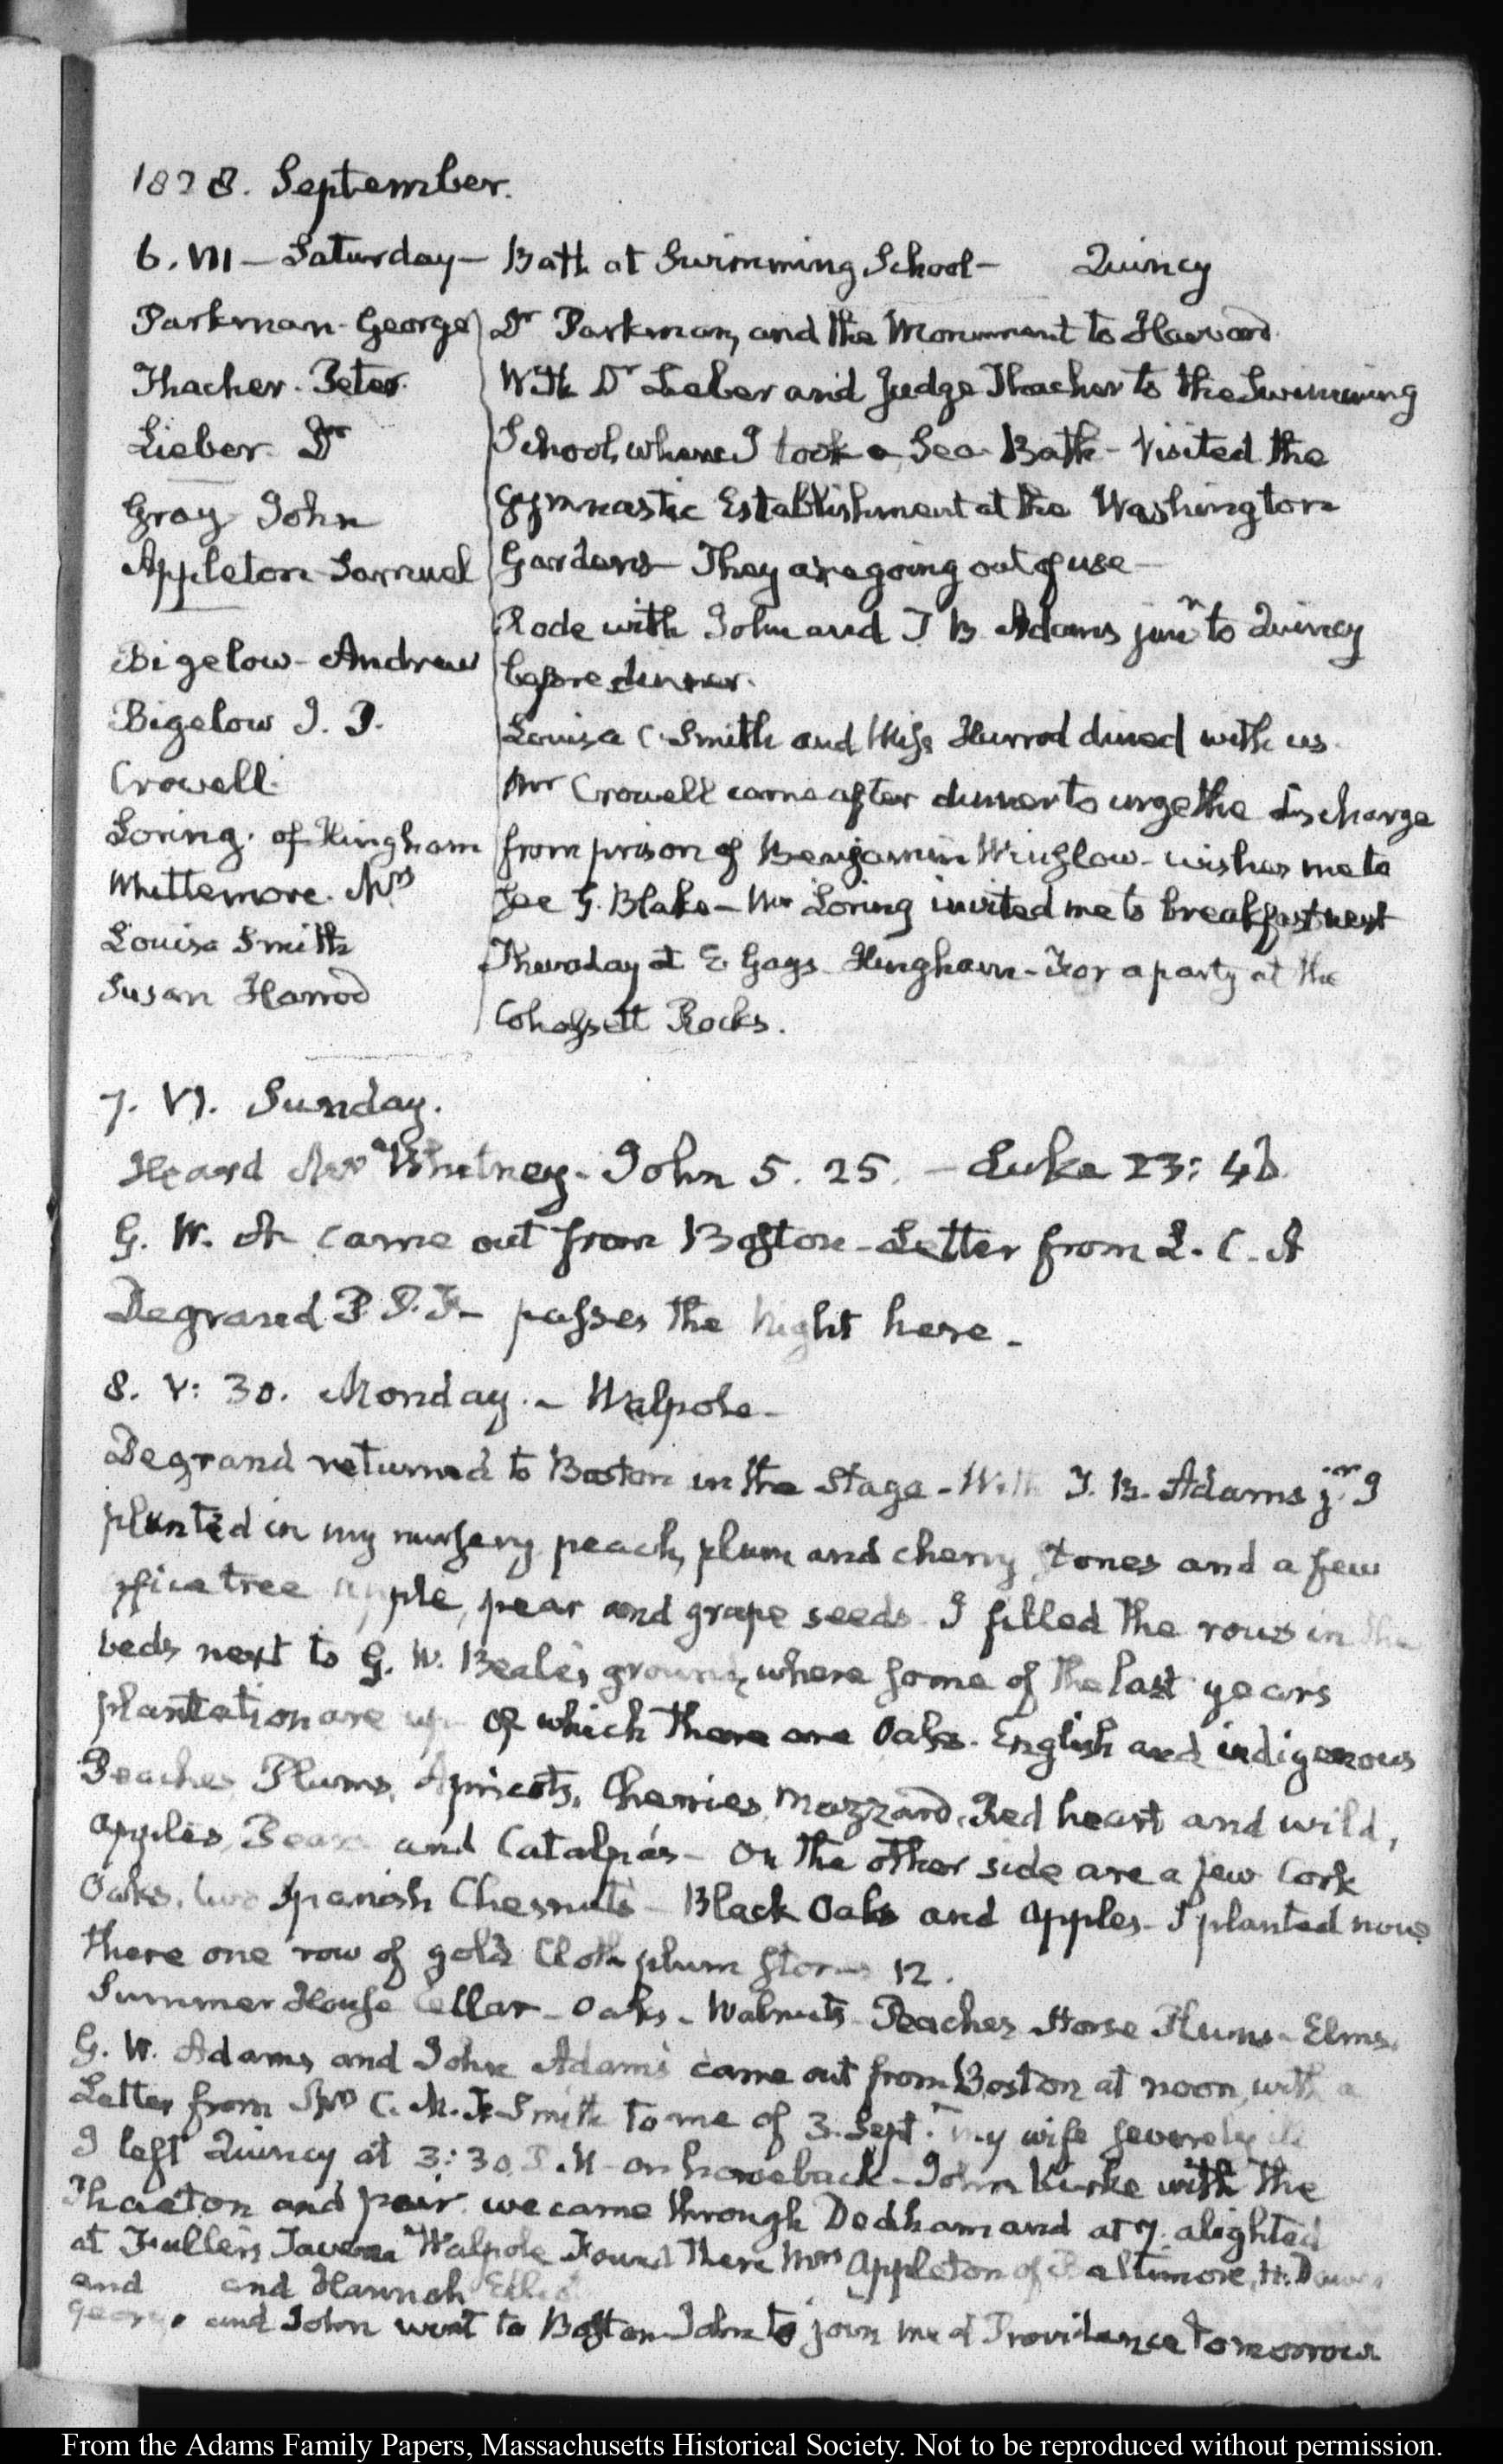 1828. September.
6. VII — Saturday — Bath at Swimming School — Quincy
Parkman. George
Thacher. Peter.
Lieber. Dr
Gray John
Appleton Samuel
Bigelow. Andrew
Bigelow J. P.
Crowell.
Loring. of Hingham
Whittemore. Mrs
Louisa Smith
Susan Harrod
Dr Parkman, and the Monument to Harvard.
With Dr Lieber and Judge Thacher to the Swimming
School, where I took a Sea Bath - Visited the
Gymnastic Establishment at the Washington
Gardens - They are going out of use -
Rode with John and T B Adams junr to Quincy
before dinner.
Louisa C. Smith and Miss Harrod dined with us.
Mr Crowell came after dinner to urge the discharge
from prison of Benjamin Winslow - wishes me to
see G. Blake - Mr Loring invited me to breakfast next
Thursday at E. Gays Hingham - For a party at the
Cohassett Rocks.
7. VI. Sunday.
Heard Mr Whitney. John 5. 25. — Luke 23:
G. W. A came out from Boston - Letter from L. C. A
Degrand P. P. F - passes the Night here -
8. V: 30. Monday. - Walpole -
Degrand returned to Boston in the Stage - With T. B. Adams jr I
planted in my nursery peach, plum and cherry stones and a few
tree apple, pear and grape seeds - I filled the rows in the
beds next to G. W. Beale's ground, where some of the last years
plantation are up - Of which there are Oaks. English and indigenous
Peaches Plums, Apricots, Cherries, Mazzard, Red heart and wild,
apples, Pears and Catalpa's - On the other side are a few Cork
Oaks, two Spanish Chesnuts - Black Oaks and apples - I planted now
there one row of gold Cloth plum stones 12.
Summer House Cellar - Oaks - Walnuts - Peaches Horse Plums - Elms.
G. W. Adams, and John Adams came out from Boston at noon, with a
Letter from Mrs C. M. F. Smith to me of 3. Sept. my wife severely ill
I left Quincy at 3:30. P. M - on horseback - John Kirke with the
Phaeton and pair we came through Dedham and at 7. alighted
at Fuller's Tavern Walpole Found there Mrs Appleton of Baltimore, H. Dawes
and and Hannah
George and John went to Boston John to join me at Providence tomorrow